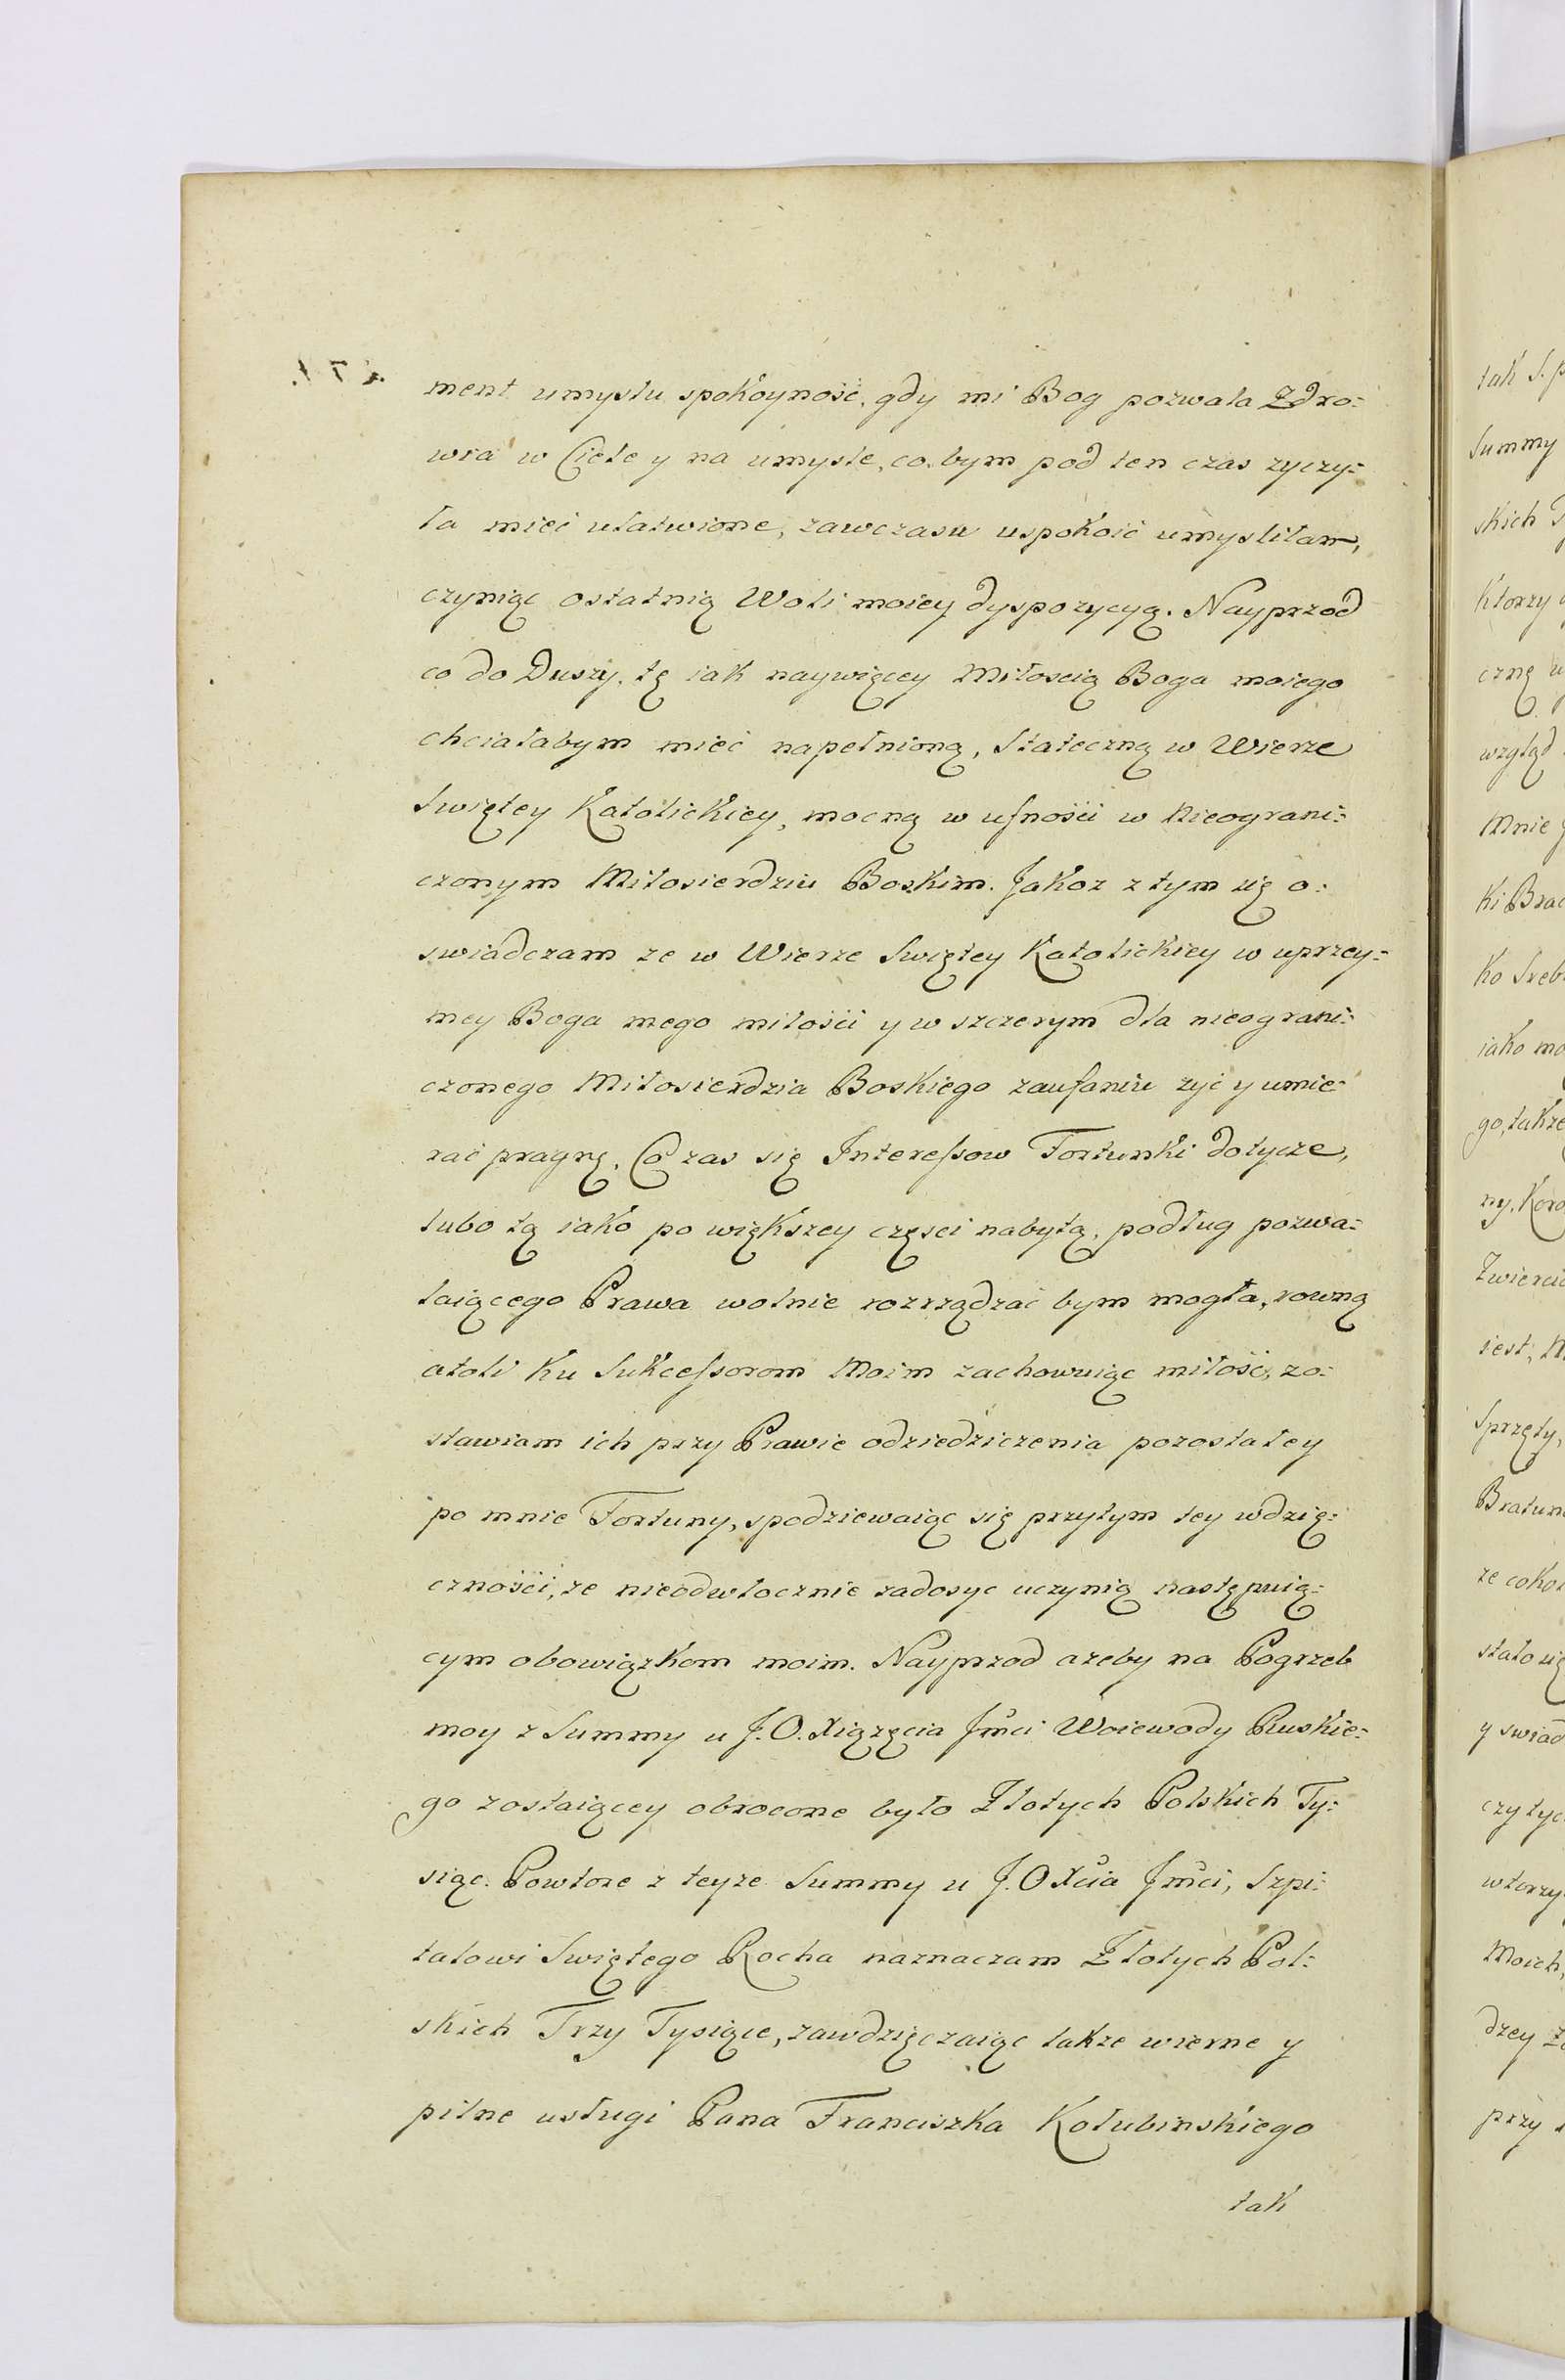 ment umysłu spokoyność, gdy mi Bog pozwala Zdro=
wia w Ciele y na umysle, co bym pod ten czas zyczy=
ła mieć ułatwione, zawczasu uspokoić umysliłam,
czyniąc ostatnią Woli moiey dyspozycyą. Nayprzod
co do Duszy, tę iak naywięcey Miłoscią Boga moiego
chciałabym mieć napełnioną, stateczną w Wierze
Swiętey Katolickiey, mocną w ufności w Nieograni=
czonym Miłosierdziu Boskim. Jakoz z tym się o=
swiadczam ze w Wierze Swiętey Katolickiey w uprzey=
mey Boga mego miłości y w szczerym dla nieograni=
czonego Miłosierdzia Boskiego zaufaniu żyć y umie=
rać pragnę, Co zas się Interessow Fortunki dotycze,
lubo tą iako po większey częsci nabytą, podług pozwa=
laiącego Prawa wolnie rozrządzać bym mogła, rowną
atoli ku Sukcessorom Moim zachowuiąc miłość, zo=
stawiam ich przy Prawie odziedziczenia pozostałey
po mnie Fortuny, spodziewaiąc się przytym tey wdzię=
czności, ze nieodwłocznie zadosyc uczynią następuią=
cym obowiązkom moim. Nayprzod azeby na Pogrzeb
moy z Summy u J. O. Xiążęcia Jmci Woiewody Ruskie=
go zostaiącey obrocone było Złotych Polskich Ty=
siąc. Powtore z teyze Summy u J. O Xcia Jmci, Szpi=
talowi Swiętego Rocha naznaczam Złotych Pol=
skich Trzy Tysiące, zawdzięczaiąc także wierne y
pilne usługi Pana Franciszka Kołubinskiego
tak
tak S. p
Summy
skich T
Ktorzy
czną w
wzgląd
Mnie
ki Brac
ko Sreb
iako mo
go, takze
ny, Koro
Zwiercia
iest, M
Sprzęty,
Bratun
ze coko
stało się
y swiad
czy tyc
wtorzy
Moich,
dzey Z
przy